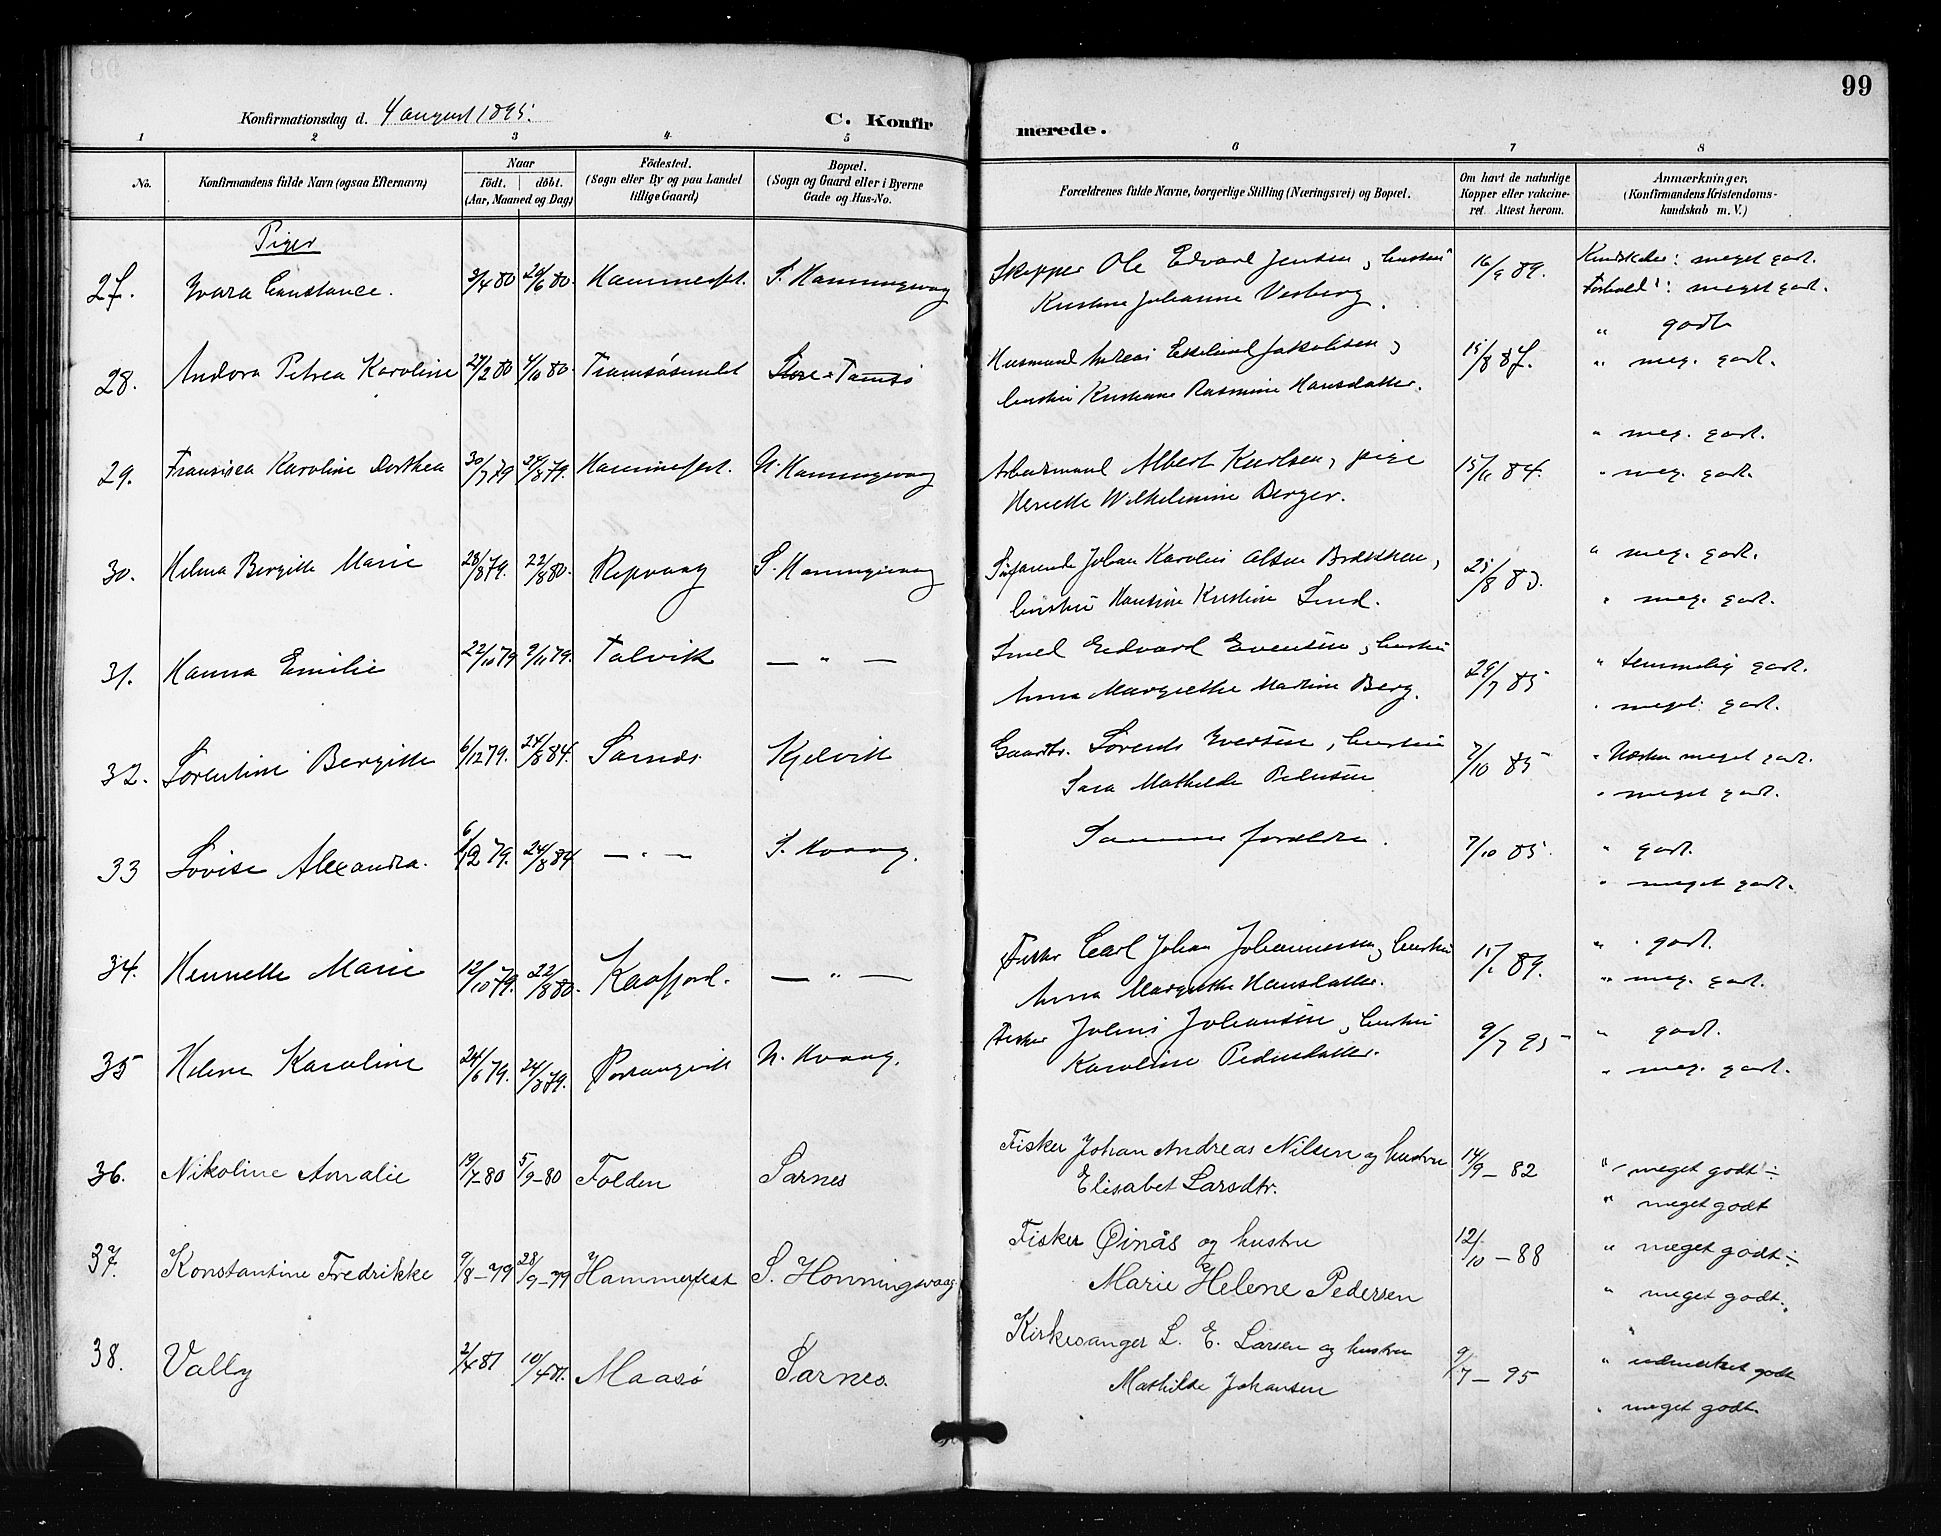 99
Konfirmationsdag d. 4 august 1895.
C. Konfirmerede.
1 2 3 4 5 6 7 8
No.
Konfirmandens fulde Navn (ogsaa Efternavn)
Naar
födt. döbt.
(Aar, Maaned og Dag)
Födested.
(Sogn eller By og paa Landet
tillige Gaard)
Bopæl.
(Sogn og Gaard eller i Byerne
Gade og Hus-No.
Forældrenes fulde Navne, borgerlige Stilling (Næringsvei) og Bopæl.
Om havt de naturlige
Kopper eller vakcine-
ret. Attest herom.
Anmærkninger,
(Konfirmandens Kristendoms-
kundskab m. V.)
Piger
27. Ivara Constance. 3/4 80 20/6 80. Hammerfest. S. Honningsvaag Skipper Ole Edvard Jensen, hustru 16/9 89. Kundskaber: meget godt.
Kristine Johanne Vesberg. Forhold: meget godt.
28. Andora Petrea Karoline 27/2 80 4/10 80. Tromsøsundet Store-Tamsø Husmand Jakobsen, 15/8 87. " godt
hustru Kristiane Rasmine Hansdatter. " meg. godt.
29. Fransisca Karoline Dorthea 30/7 79 24/8 79. Hammerfest. N. Honningsvaag Arbeidsmand Albert Karlsen, pige 15/11 84. " meg. godt.
Henrikke Wilhelmine Berger. " meg. godt.
30. Helma Bergitte Marie 28/8 79. 22/8 80. Repvaag S. Honningsvaag Johan Karolius Olsen Brækken, 25/8 83. " meg. godt.
hustru Hansine Kristine Lund. " meg. godt.
31. Hanna Emilie 22/10 79 9/11 79. Talvik — " — Smed Edvard Evensen, hustru 29/7 85 " temmelig godt.
Anna Margrethe Martine Berg. " meget godt.
32. Sørentine Bergitte 6/12 79. 24/8 84. Sarnes Kjelvik Gaardbr. Sørend Iversen, hustru 7/10 85 " Næsten meget godt.
Sara Mathilde Pedersen " meget godt.
33 Lovise Alexandra. 6/12 79. 24/8 84 — " — S. Hvaag. Samme forældre. 7/10 85. " godt.
" meget godt.
34. Henrikke Marie 12/10 79. 22/8 80. Kaafjord. — " — Fisker Carl Johan Johannessen, hustru 15/ 89. " godt.
Anna Margrethe Hansdatter. " meg. godt.
35 Helene Karoline 24/6 79. 24/8 79. Porsangvik N. Hvaag. Fisker Julius Johansen, hustru 9/7 95 " godt.
Karoline Pedersdatter. " meg. godt.
36. Nikoline Amalie 19/7-80 5/9-80 Folden Sarnes Fisker Johan Andreas Nilsen og hustru 14/9-82 " meget godt ÷
Elisabet Larsdtr. " meget godt
37. Konstantine Fredrikke 9/8-79 28/9-79 Hammerfest S. Honningsvaag Fisker Øinås og hustru 12/10-88 " meget godt ÷
Marie Helene Pedersen " meget godt.
38. Vally 2/4 81 10/4 81. Maasø Sarnes. Kirkesanger L. E. Larsen og hustru 9/7-95 " udmerket godt
Mathilde Johansen " meget godt.